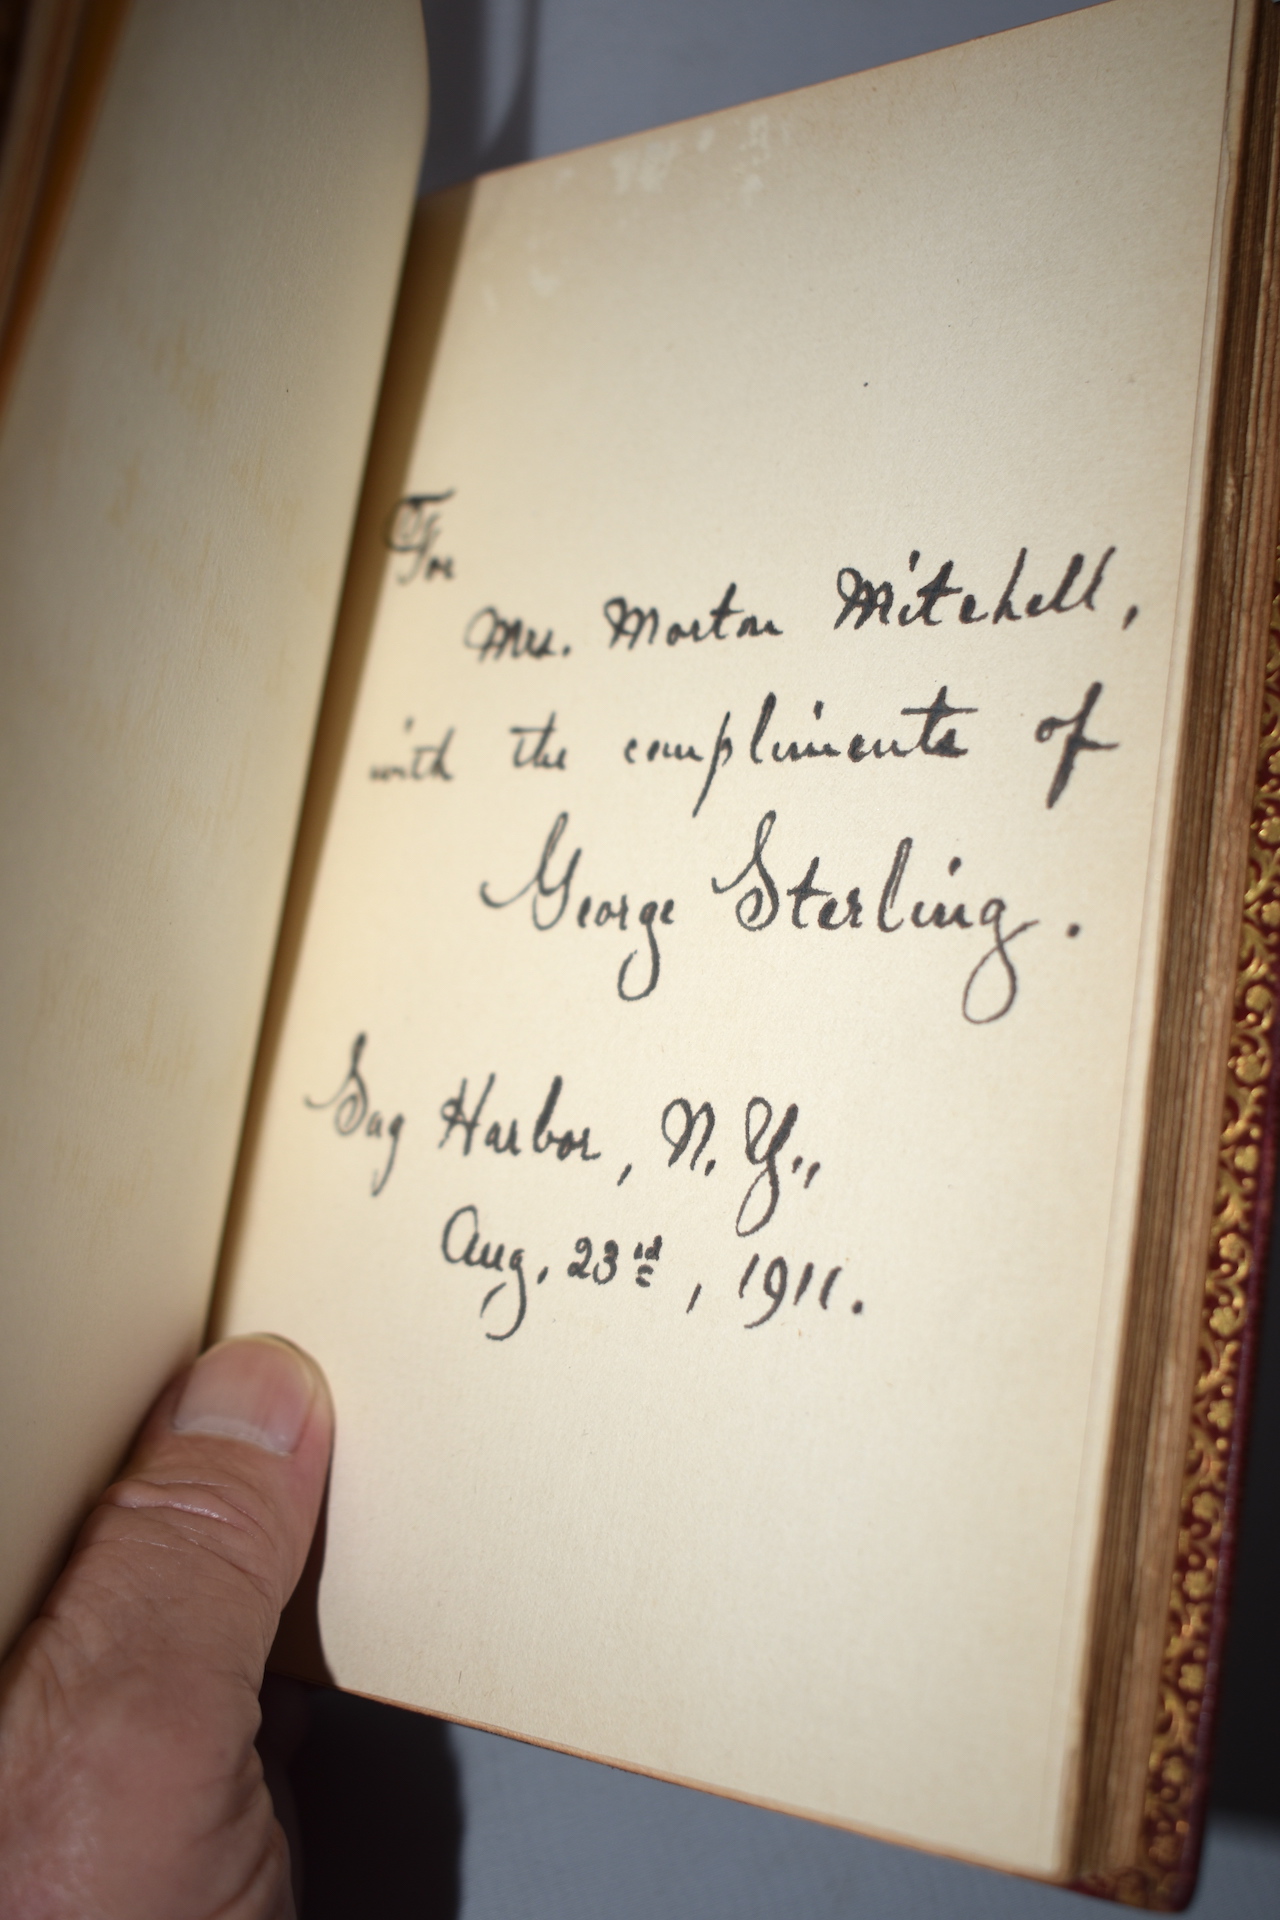 For
Mrs. Morton Mitchell,
with the compliments of
George Sterling.
Sag Harbor, N. Y.,
Aug. 23rd, 1911.